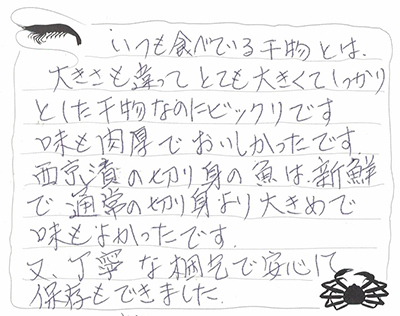 いつも食べている干物とは、
大きさも違ってとても大きくてしっかり
とした干物なのにビックリです
味も肉厚でおいしかったです。
西京漬の切り身の魚は、新鮮
で通常の切り身より大きめで
味もよかったです。
又、丁寧な梱包で安心して
保存もできました。